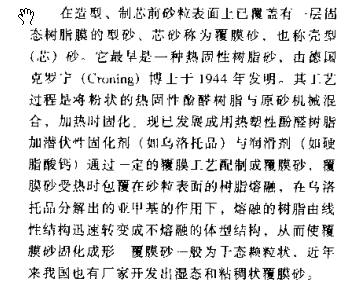 在造型、制芯前砂粒表面上已覆盖有一层固
态树脂膜的型砂、芯砂称为覆膜砂，也称壳型
（芯）砂。它最早是一种热固性树脂砂，由德国
克罗宁（Croning）博士于1944年发明。其工艺
过程是将粉状的热固性酚醛树脂与原砂机械混
合，加热时固化。现已发展成用热塑性酚醛树脂
加潜伏性固化剂（如乌洛托品）与润滑剂（如硬
脂酸钙）通过一定的覆膜工艺配制成覆膜砂，覆
膜砂受热时包覆在砂粒表面的树脂熔融，在乌洛
托品分解出的亚甲基的作用下，熔融的树脂由线
性结构迅速转变成不熔融的体型结构，从而使覆
膜砂固化成形 覆膜砂一般为干态颗粒状，近年
来我国也有厂家开发出湿态和粘稠状覆膜砂。